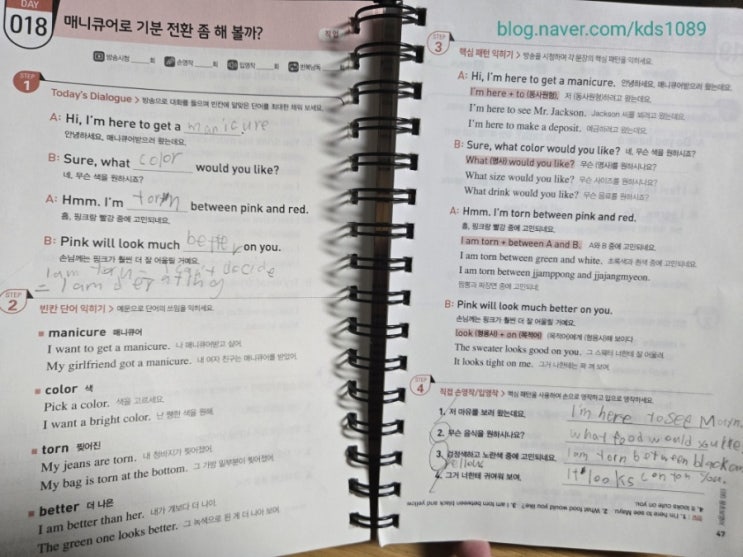 DAY
018
매니큐어로 기분 전환 좀 해 볼까?
직업
방송시청 ___회
손영작 ___회
입영작 ___회
반복낭독 ___회
STEP
1
Today's Dialogue > 방송으로 대화를 들으며 빈칸에 알맞은 단어를 최대한 채워 보세요.
A: Hi, I'm here to get a manicure.
안녕하세요, 매니큐어받으러 왔는데요.
B: Sure, what color would you like?
네, 무슨 색을 원하시죠?
A: Hmm. I'm torn between pink and red.
흠, 핑크랑 빨강 중에 고민되네요.
B: Pink will look much better on you.
손님께는 핑크가 훨씬 더 잘 어울릴 거예요.
I am torn = I can't decide
= I am debating
STEP
2
빈칸 단어 익히기 > 예문으로 단어의 쓰임을 익히세요.
manicure 매니큐어
I want to get a manicure. 나 매니큐어받고 싶어.
My girlfriend got a manicure. 내 여자 친구는 매니큐어를 받았어.
color 색
Pick a color. 색을 고르세요.
I want a bright color. 난 밝은 색을 원해.
torn 찢어진
My jeans are torn. 내 청바지가 찢어졌어.
My bag is torn at the bottom. 그 가방 밑부분이 찢어졌어.
better 더 나은
I am better than her. 내가 걔보다 더 나아.
The green one looks better. 그 녹색으로 된 게 더 나아 보여.
blog.naver.com/kds1089
STEP
3
핵심 패턴 익히기 > 방송을 시청하며 각 문장의 핵심 패턴을 익히세요.
A: Hi, I'm here to get a manicure. 안녕하세요, 매니큐어받으러 왔는데요.
I'm here + to (동사원형). 저 (동사원형)하려고 왔는데요.
I'm here to see Mr. Jackson. Jackson 씨를 뵈려고 왔는데요.
I'm here to make a deposit. 예금하려고 왔는데요.
B: Sure, what color would you like? 네, 무슨 색을 원하시죠?
What (명사) would you like? 무슨 (명사)를 원하시나요?
What size would you like? 무슨 사이즈를 원하시나요?
What drink would you like? 무슨 음료를 원하시나요?
A: Hmm. I'm torn between pink and red.
흠, 핑크랑 빨강 중에 고민되네요.
I am torn + between A and B. A와 B 중에 고민되네요.
I am torn between green and white. 초록색과 흰색 중에 고민되네요.
I am torn between jjamppong and jjajangmyeon.
짬뽕과 짜장면 중에 고민되네.
B: Pink will look much better on you.
손님께는 핑크가 훨씬 더 잘 어울릴 거예요.
look (형용사) + on (목적어) (목적어)에게 (형용사)해 보이다
The sweater looks good on you. 그 스웨터 너한테 잘 어울려.
It looks tight on me. 그거 나한테는 꽉 껴 보여.
STEP
4
직접 손영작/입영작 > 핵심 패턴을 사용하여 손으로 영작하고 입으로 영작하세요.
1. 저 마유를 보러 왔는데요. I'm here to see
2. 무슨 음식을 원하시나요? what food would you like
3. 검정색하고 노란색 중에 고민되네요. I am torn between black and
yellow
4. 그거 너한테 귀여워 보여. It looks on you.
1. I'm here to see Mayu. 2. What food would you like? 3. I am torn between black and yellow.
4. It looks cute on you.
47